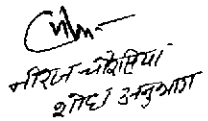 नीरज चौरसिया
शोध अनुभाग